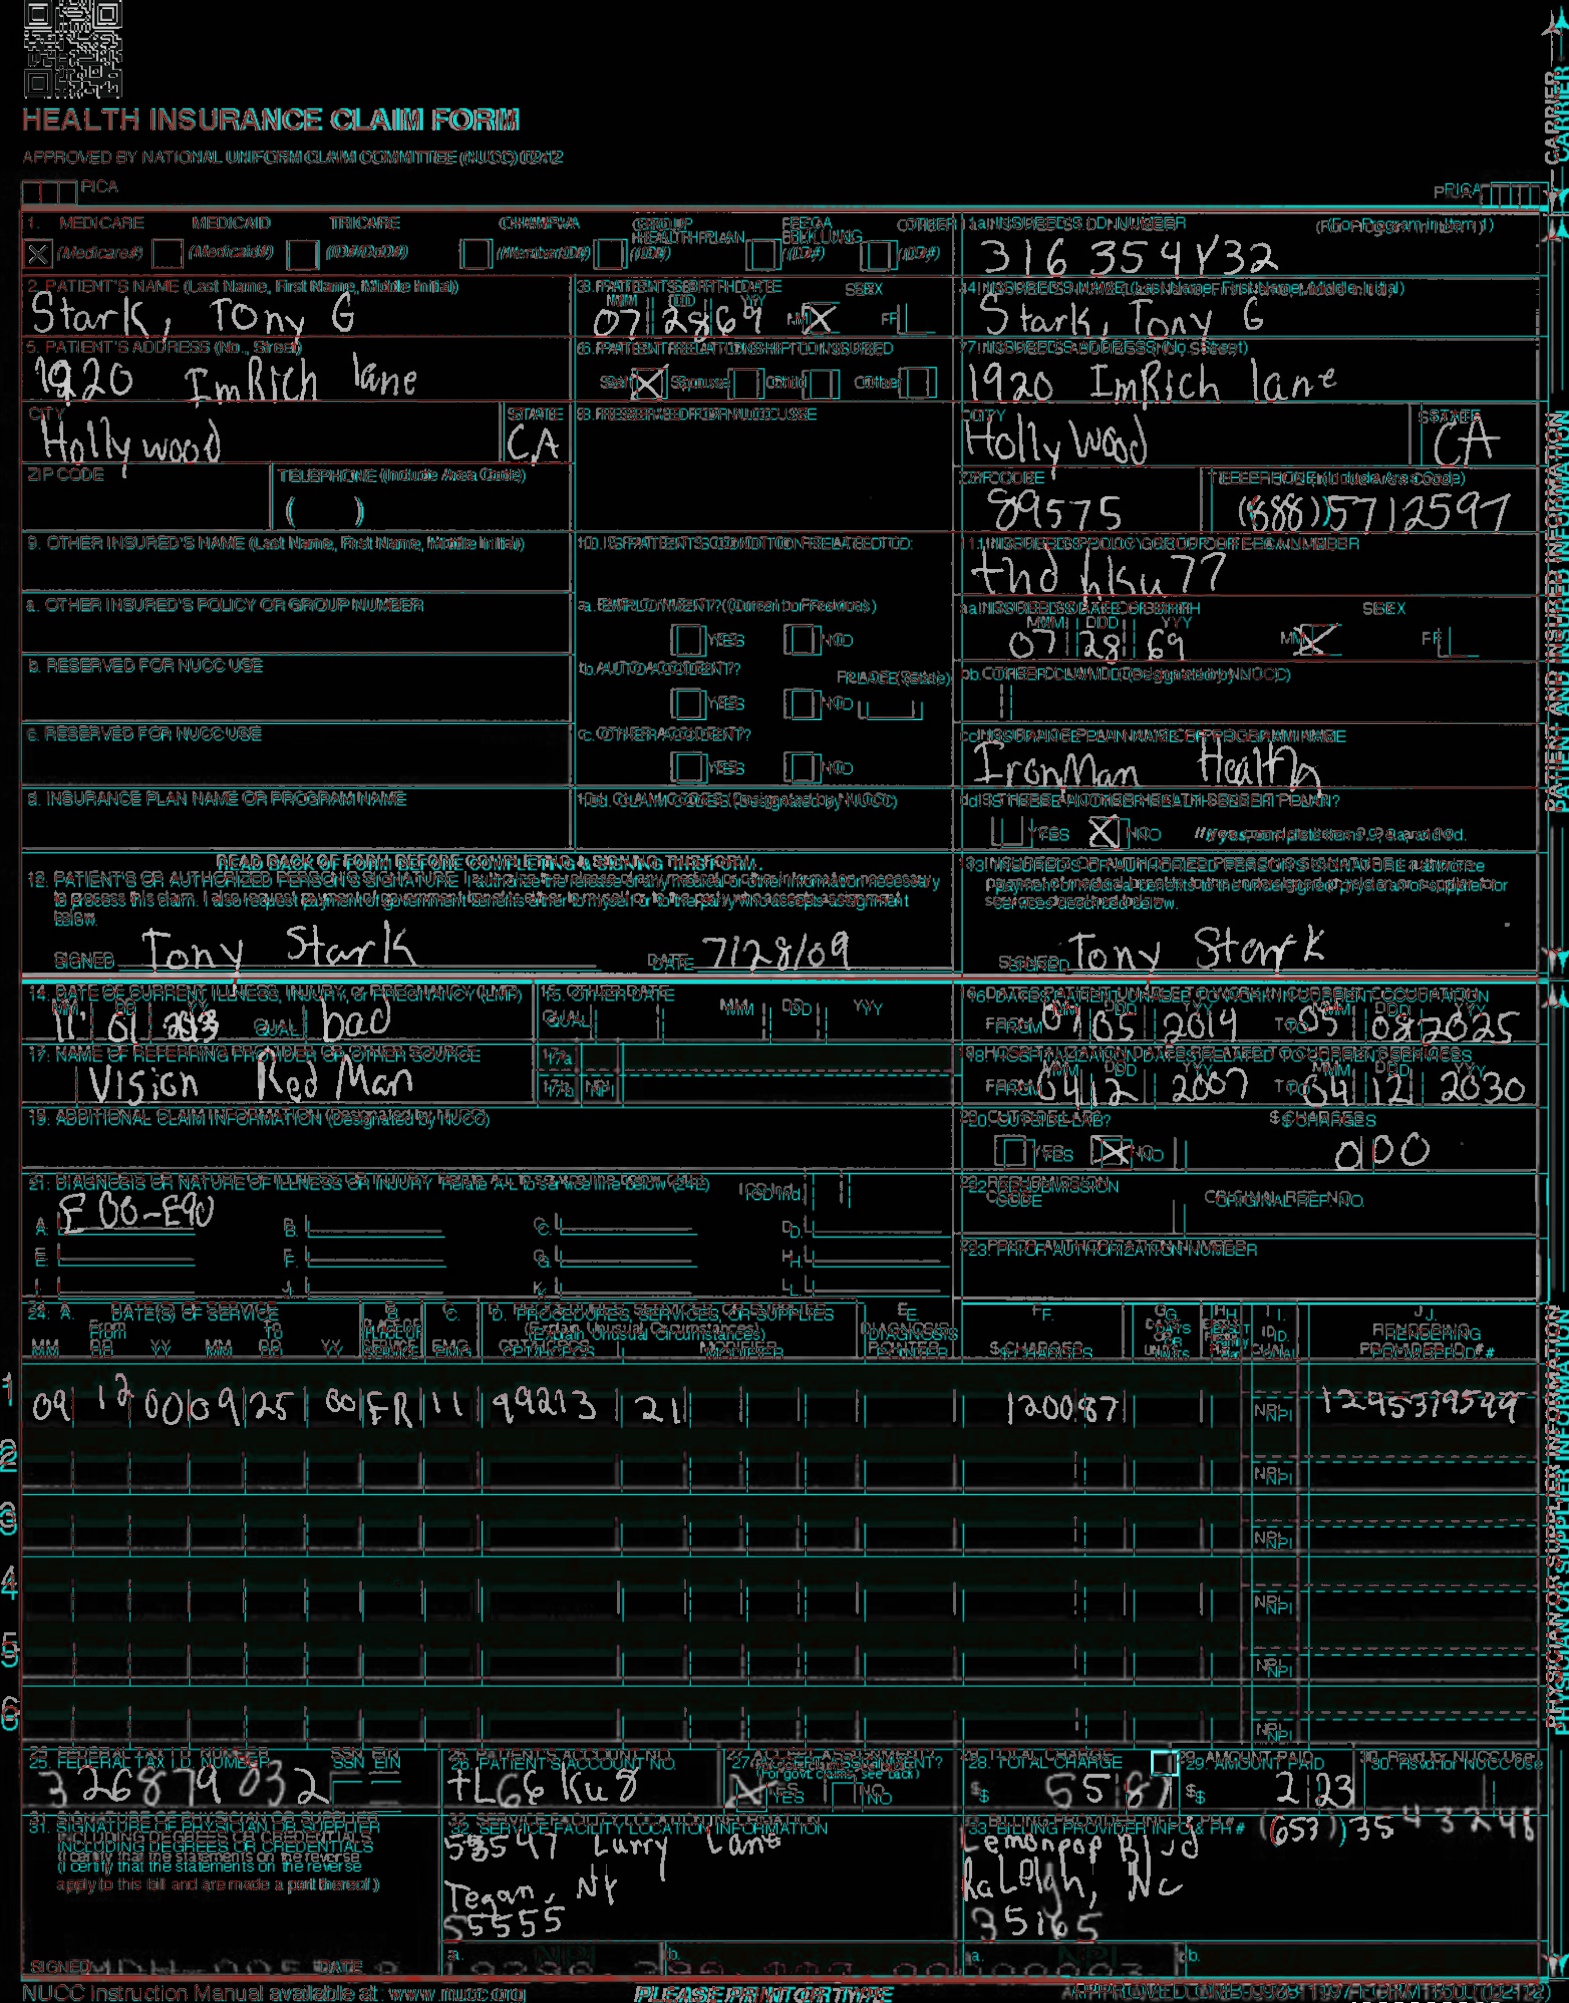 HEALTH INSURANCE CLAIM FORM
APPROVED BY NATIONAL UNIFORM CLAIM COMMITTEE (NUCC) 02/12
PICA
PICA
CARRIER
1. MEDICARE MEDICAID TRICARE CHAMPVA GROUP HEALTH PLAN FECA BLK LUNG OTHER
(Medicare#) (Medicaid#) (ID#/DoD#) (Member ID#) (ID#) (ID#) (ID#)
1a. INSURED'S I.D. NUMBER (For Program in Item 1)
316 354Y32
2. PATIENT'S NAME (Last Name, First Name, Middle Initial)
Stark, Tony G
3. PATIENT'S BIRTH DATE SEX
MM DD YY
07 28 69 M X F
4. INSURED'S NAME (Last Name, First Name, Middle Initial)
Stark, Tony G
5. PATIENT'S ADDRESS (No., Street)
1920 ImRich lane
6. PATIENT RELATIONSHIP TO INSURED
Self X Spouse Child Other
7. INSURED'S ADDRESS (No., Street)
1920 ImRich lane
CITY STATE
Hollywood CA
8. RESERVED FOR NUCC USE
CITY STATE
Hollywood CA
ZIP CODE TELEPHONE (Include Area Code)
( )
ZIP CODE TELEPHONE (Include Area Code)
89575 (888) 5712597
9. OTHER INSURED'S NAME (Last Name, First Name, Middle Initial)
10. IS PATIENT'S CONDITION RELATED TO:
11. INSURED'S POLICY GROUP OR FECA NUMBER
a. OTHER INSURED'S POLICY OR GROUP NUMBER
a. EMPLOYMENT? (Current or Previous)
YES NO
a. INSURED'S DATE OF BIRTH SEX
MM DD YY
07 28 69 M X F
b. RESERVED FOR NUCC USE
b. AUTO ACCIDENT? PLACE (State)
YES NO
b. OTHER CLAIM ID (Designated by NUCC)
c. RESERVED FOR NUCC USE
c. OTHER ACCIDENT?
YES NO
c. INSURANCE PLAN NAME OR PROGRAM NAME
IronMan Health
d. INSURANCE PLAN NAME OR PROGRAM NAME
10d. CLAIM CODES (Designated by NUCC)
d. IS THERE ANOTHER HEALTH BENEFIT PLAN?
YES X NO If yes, complete items 9, 9a, and 9d.
PATIENT AND INSURED INFORMATION
READ BACK OF FORM BEFORE COMPLETING & SIGNING THIS FORM.
12. PATIENT'S OR AUTHORIZED PERSON'S SIGNATURE I authorize the release of any medical or other information necessary
to process this claim. I also request payment of government benefits either to myself or to the party who accepts assignment
below.
SIGNED Tony Stark DATE 7/28/09
13. INSURED'S OR AUTHORIZED PERSON'S SIGNATURE I authorize
payment of medical benefits to the undersigned physician or supplier for
services described below.
SIGNED Tony Stark
14. DATE OF CURRENT ILLNESS, INJURY, or PREGNANCY (LMP)
MM DD YY
11 01 QUAL. bad
15. OTHER DATE
QUAL. MM DD YY
16. DATES PATIENT UNABLE TO WORK IN CURRENT OCCUPATION
MM DD YY MM DD YY
FROM 05 2019 TO 05 08 2025
17. NAME OF REFERRING PROVIDER OR OTHER SOURCE
Vision Red Man
17a.
17b. NPI
18. HOSPITALIZATION DATES RELATED TO CURRENT SERVICES
MM DD YY MM DD YY
FROM 04 12 2007 TO 04 12 2030
19. ADDITIONAL CLAIM INFORMATION (Designated by NUCC)
20. OUTSIDE LAB? $ CHARGES
YES X NO 000
21. DIAGNOSIS OR NATURE OF ILLNESS OR INJURY Relate A-L to service line below (24E) ICD Ind.
A. E 00-E90 B. C. D.
E. F. G. H.
I. J. K. L.
22. RESUBMISSION CODE ORIGINAL REF. NO.
23. PRIOR AUTHORIZATION NUMBER
24. A. DATE(S) OF SERVICE B. C. D. PROCEDURES, SERVICES, OR SUPPLIES E. F. G. H. I. J.
From To PLACE OF SERVICE EMG (Explain Unusual Circumstances) DIAGNOSIS POINTER $ CHARGES DAYS OR UNITS ID. QUAL. RENDERING PROVIDER ID. #
MM DD YY MM DD YY CPT/HCPCS MODIFIER
1 09 12 00 09 25 00 ER 11 99213 21 120087 NPI 1295379599
2 NPI
3 NPI
4 NPI
5 NPI
6 NPI
PHYSICIAN OR SUPPLIER INFORMATION
25. FEDERAL TAX I.D. NUMBER SSN EIN
326879032
26. PATIENT'S ACCOUNT NO.
27. ACCEPT ASSIGNMENT?
(For govt. claims, see back)
X YES NO
28. TOTAL CHARGE
$ 55 87
29. AMOUNT PAID
$ 2 23
30. Rsvd. for NUCC Use
31. SIGNATURE OF PHYSICIAN OR SUPPLIER
INCLUDING DEGREES OR CREDENTIALS
(I certify that the statements on the reverse
apply to this bill and are made a part thereof.)
SIGNED DATE
32. SERVICE FACILITY LOCATION INFORMATION
Lurry Lane
Tegan, NY
55555
a. b.
33. BILLING PROVIDER INFO & PH # (653) 3543248
Lemonpop Blvd
Raleigh, NC
35165
a. b.
NUCC Instruction Manual available at: www.nucc.org
PLEASE PRINT OR TYPE